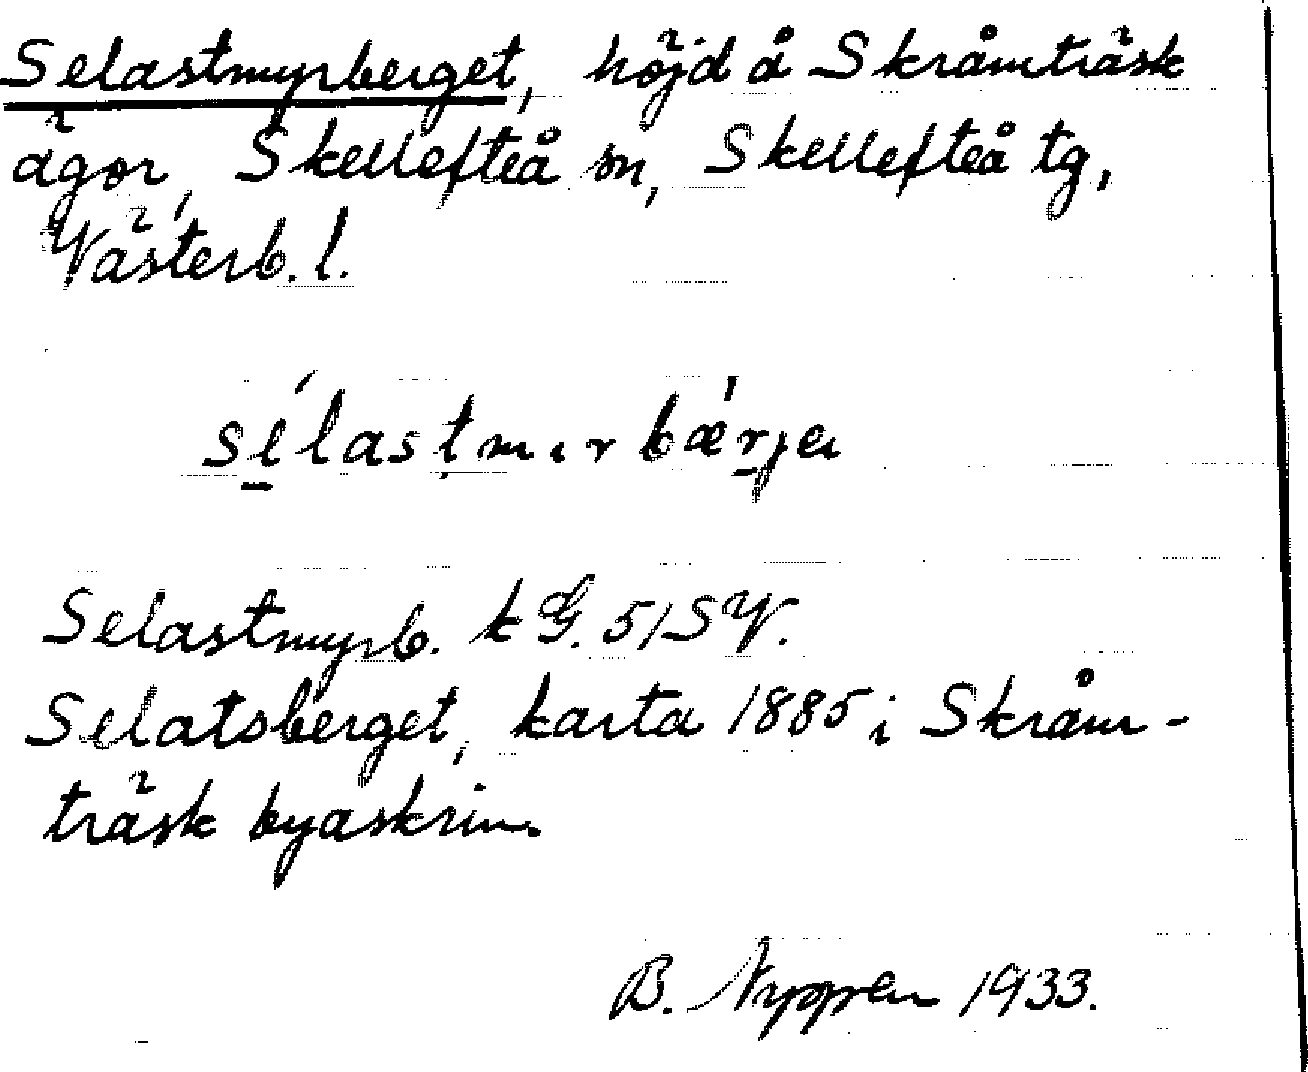 Selastmyrberget, höjd å Skråmträsk
ägor, Skellefteå sn, Skellefteå tg,
Västerb. l.
sélastmırbǽrjeı
Selastmyrb. k G. 51 SV.
Selatsberget, karta 1885 i Skråm-
träsk byaskrin.
B. 1933.